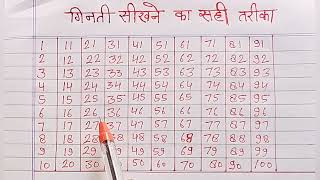 गिनती सीखने का सही तरीका
1 11 21 31 41 51 61 71 81 91
2 12 22 32 42 52 62 72 82 92
3 13 23 33 43 53 63 73 83 93
4 14 24 34 44 54 64 74 84 94
5 15 25 35 45 55 65 75 85 95
6 16 26 36 46 56 66 76 86 96
7 17 27 37 47 57 67 77 87 97
8 18 28 38 48 58 68 78 88 98
9 19 29 39 49 59 69 79 89 99
10 20 30 50 60 70 80 90 100